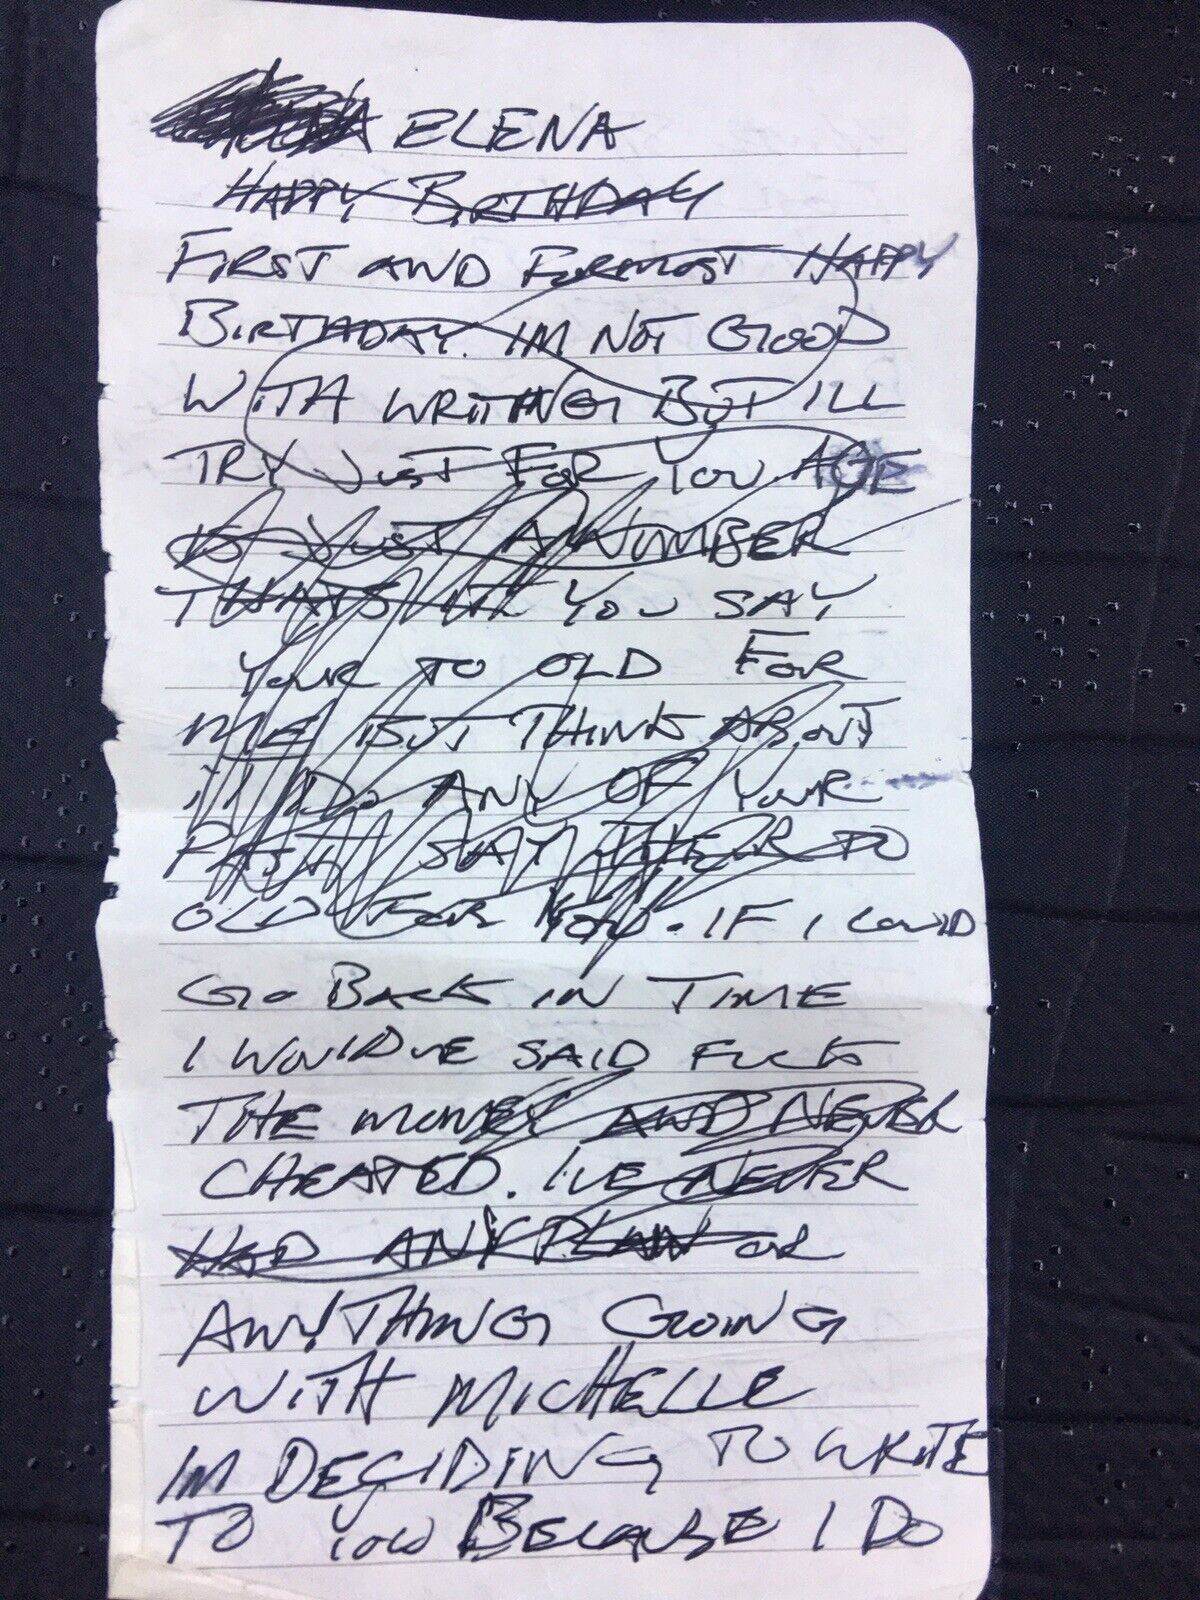 ELENA
HAPPY BIRTHDAY
FIRST AND FORMOST HAPPY
BIRTHDAY. IM NOT GOOD
WITH WRITING BUT ILL
TRY JUST FOR YOU. AGE
IS JUST A NUMBER
THATS IT. YOU SAY
YOUR TO OLD FOR
ME BUT THINK ABOUT
IT DO ANY OF YOUR
SAY THEIR TO
OLD FOR YOU. IF I COULD
GO BACK IN TIME
I WOULDVE SAID FUCK
THE MONEY AND NEVER
CHEATED. IVE NEVER
HAD ANY PLAN OR
ANYTHING GOING
WITH MICHELLE
IM DECIDING TO WRITE
TO YOU BECAUSE I DO